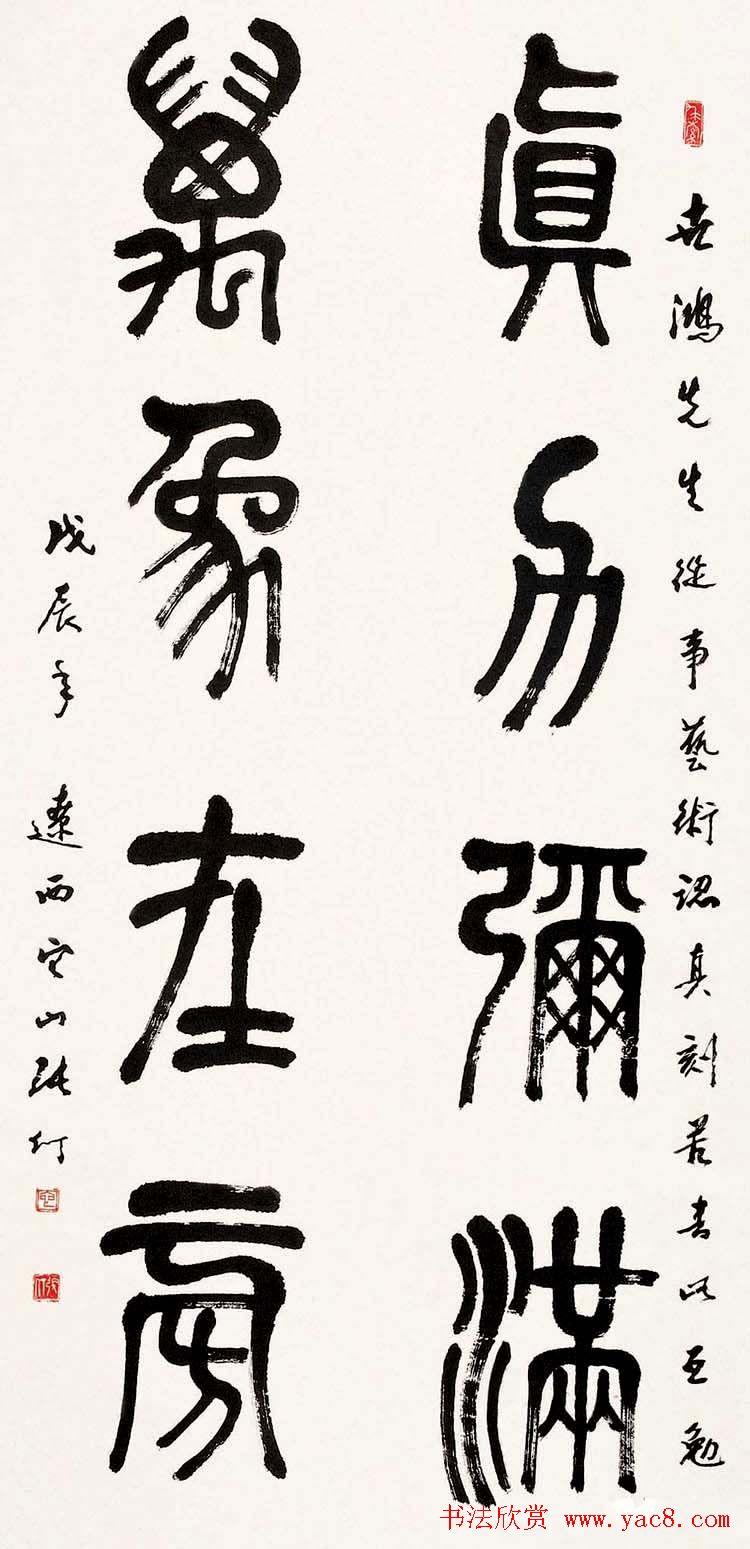 世鴻先生從事藝術認真刻苦書此互勉
眞力彌滿
萬象在旁
戊辰年 遼西它山張仃
书法欣赏 www.yac8.com